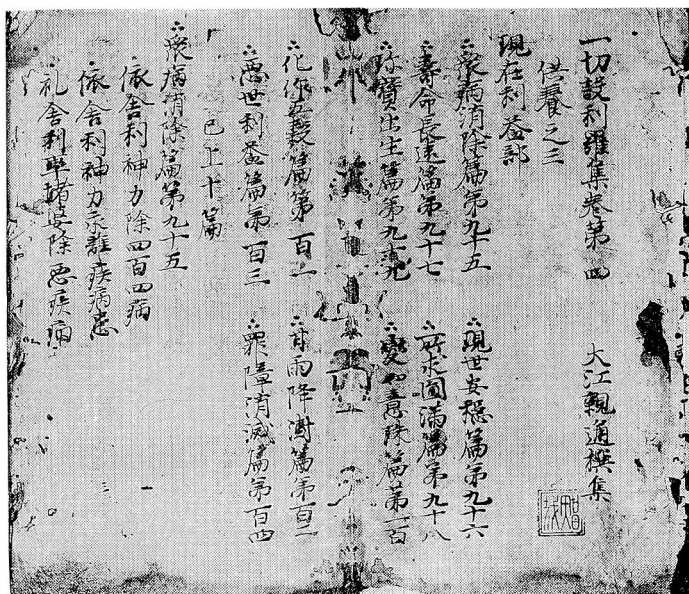 一切設利羅集卷第四　大江親通撰集
供養之三
現在利益部
衆病消除篇第九十五　現世安穏篇第九十六
壽命長遠篇第九十七　所求圓滿篇第九十八
珍寶出生篇第九十九　變如意珠篇第一百
化作五穀篇第百一　甘雨降澍篇第百二
惡世利益篇第百三　罪障消滅篇第百四
已上十篇
衆病消除篇第九十五
依舎利神力除四百四病
依舎利神力永離疾病患
礼舎利率堵婆除惡疾病